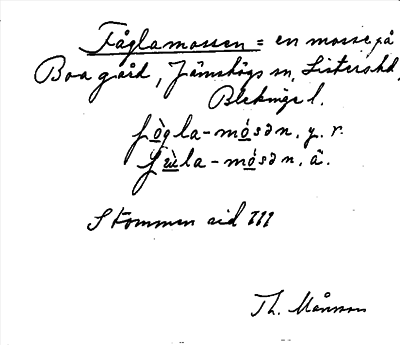 Fåglamossen = en mosse på
Boa gård, Jämshögs sn, Listers hd,
Blekinge l.
fògla-mósən. y. r.
fùla-mósən. ä.
Stommen sid 111
Th. Månsson